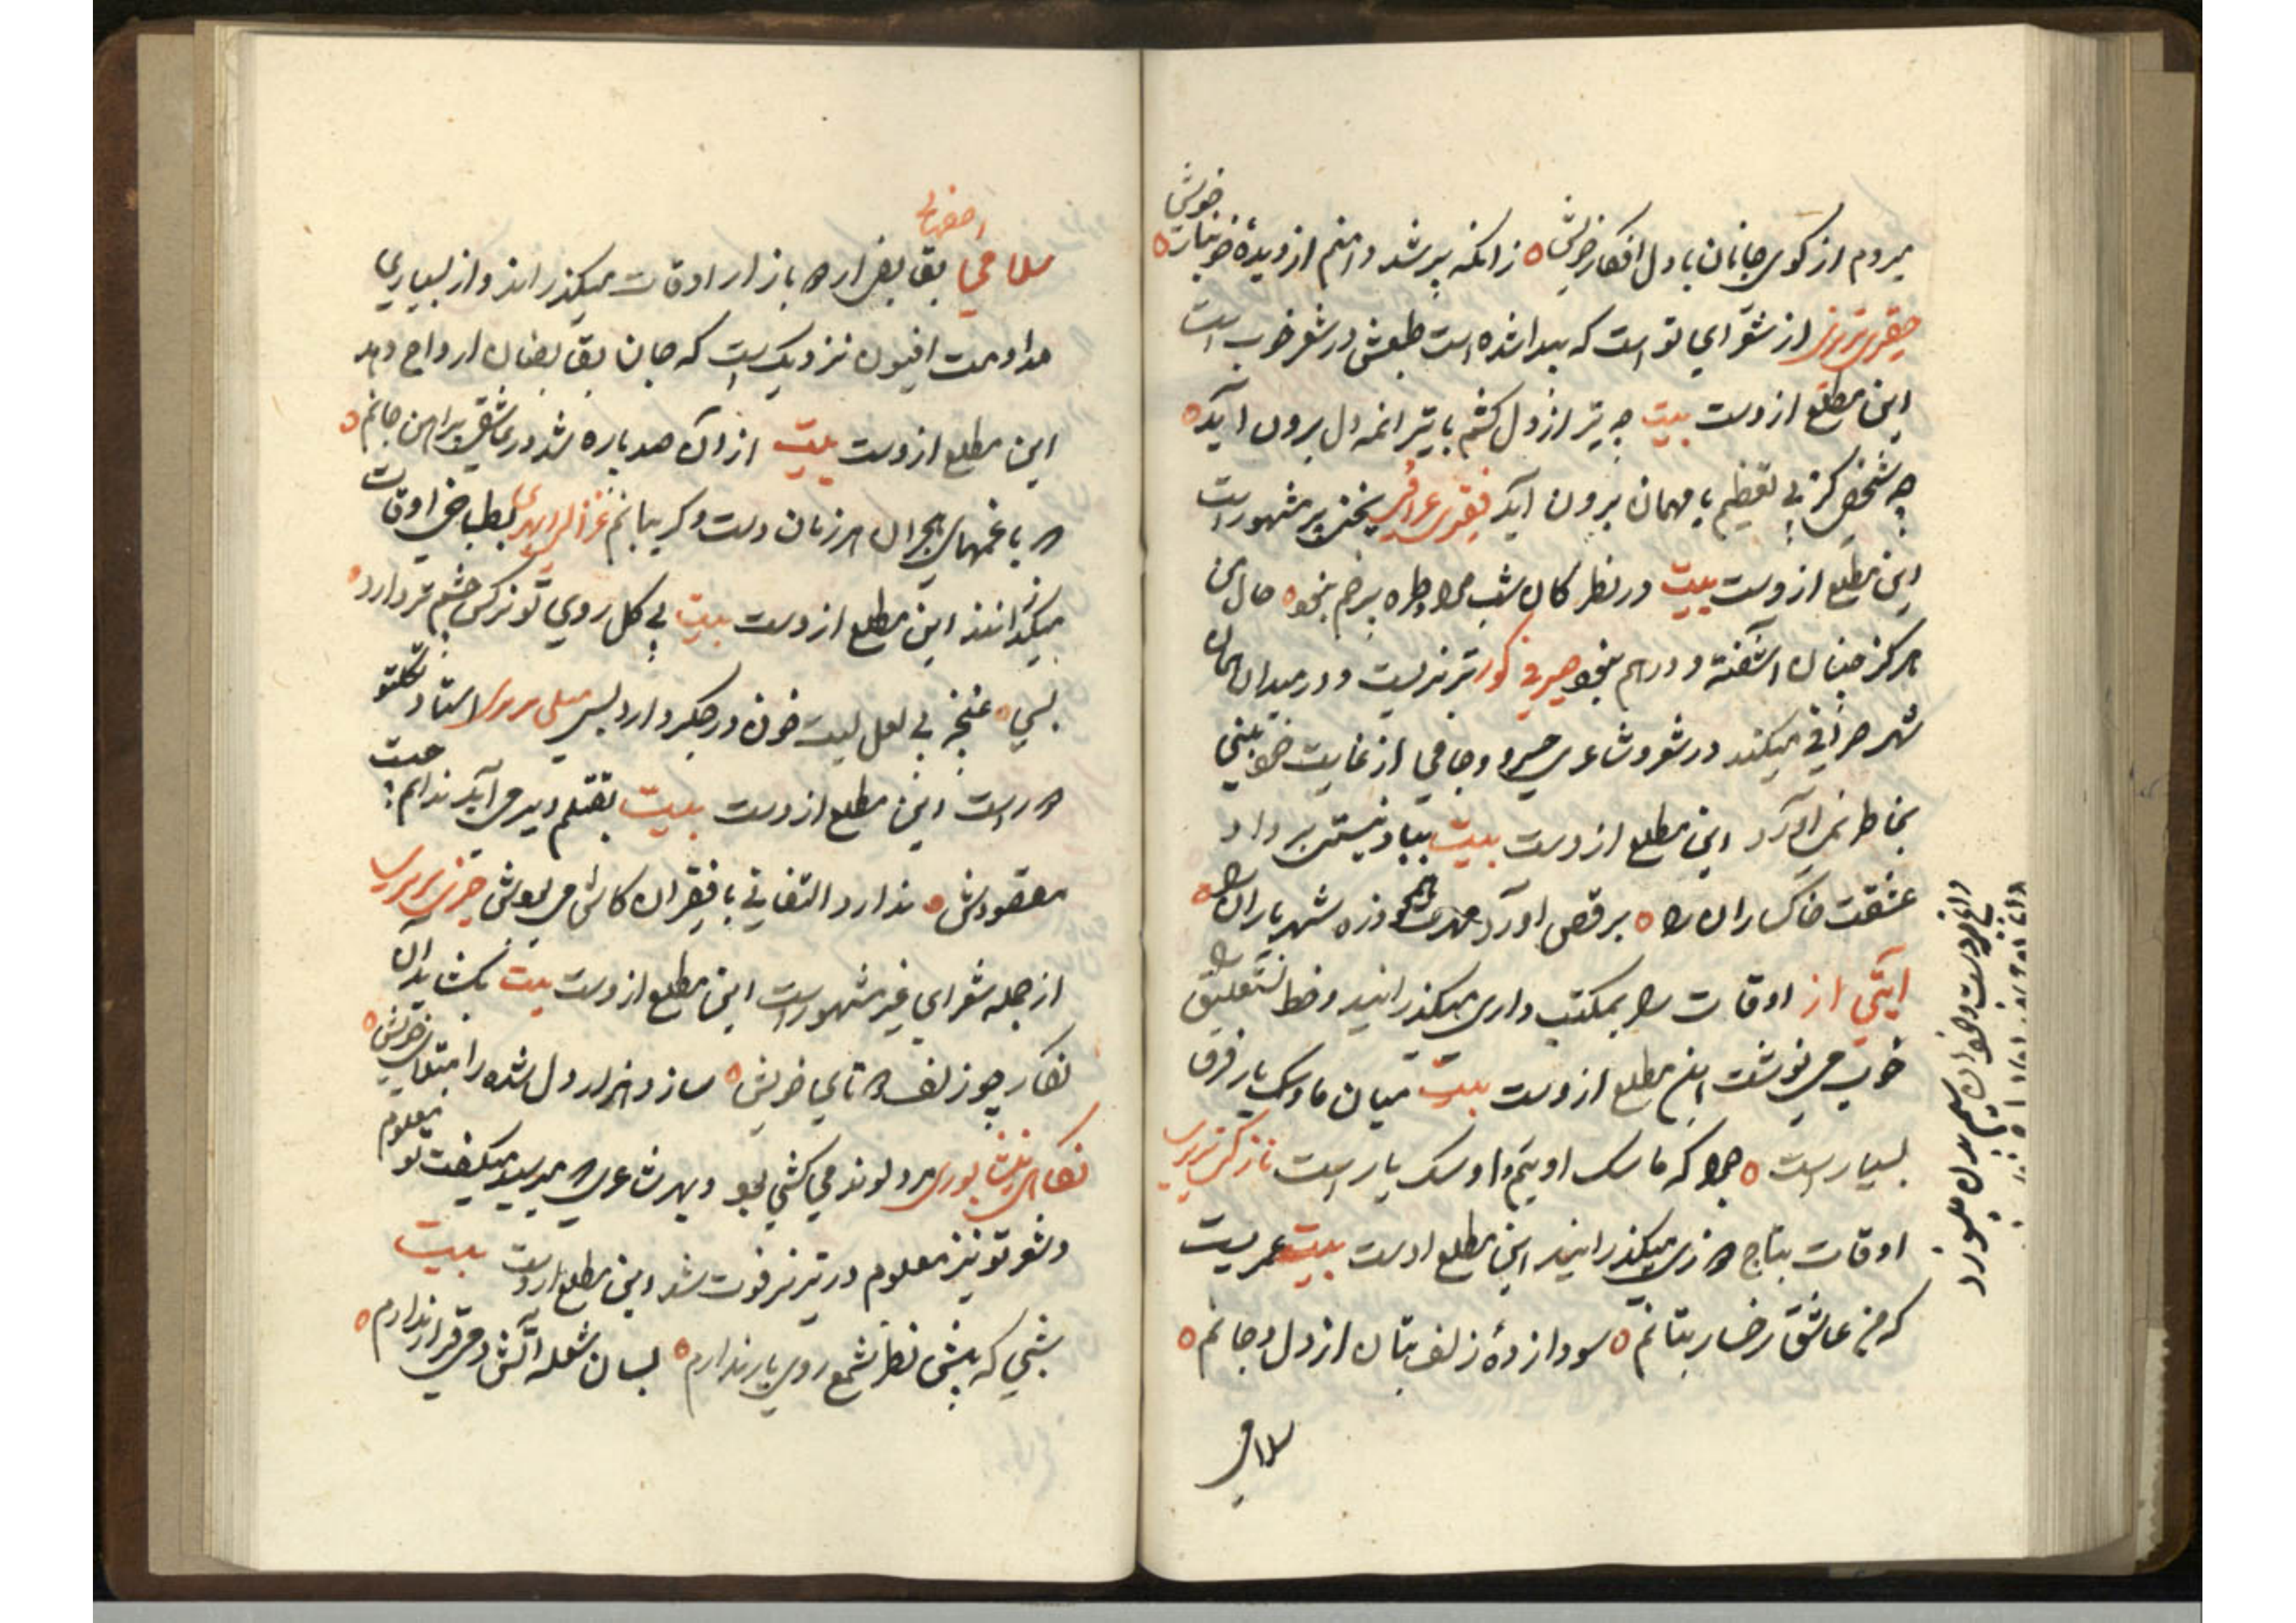 میروم از کوی جانان با دل افکار خویش ○ زانکه پر شد دامنم از دیدهٔ خونبار خویش ○
حقیری تبریزی از شعرای نو است که پیدا شده است طبعش در شعر خوب است
این مطلع از وست بیت چه تیر از دل کشم با تیر انمه دل برون آید ○
چه شخصی کز پی تعظیم با مهمان برون آید فقیری عراقی بخش پز مشهور است
این مطلع از وست بیت در نظر کان شب مرا طره پر خم نبود ○ حال من
هرگز چنان آشفته و درهم نبود صیرفی کور تبریزیست و در میدان همان
شهر صرافی میکند در شعر و شاعری خسرو و جامی از غایت خودبینی
بخاطر نمی آورد این مطلع از وست بیت بباد نیستی برداد
عشقت خاکساران را ○ برقص آورد مهرت همچو ذره شهریاران را ○
آیتی از اوقات را بمکتب داری میگذرانید و خط نستعلیق را
خوب می نوشت این مطلع از وست بیت میان ما و سگ یار فرق
بسیار است ○ چرا که ما سگ اوئیم و او سگ یار است نازکی تبریزی
اوقات بتاج دوزی میگذرانید این مطلع اوست بیت عمریست
که من عاشق رخسار بتانم ○ سودازدهٔ زلف بتان از دل و جانم ○
سلامی
سلامی اصفهانی بقابض ارواح بازار اوقات میگذراند و از بسیاری
مداومت افیون نزدیک است که جان بقابضان ارواح دهد
این مطلع از وست بیت از آن صد پاره شد در عاشقی پیراهن جانم ○
که با غمهای هجران هر زمان دست و گریبانم غزالی ابهری بطباخی اوقات
میگذرانند این مطلع از وست بیت بی گل روی تو نرگس چشم تر دارد ○
بسی ○ غنچه بی لعل لبت خون در جگر دارد بسی استاد تکلتو
دوز است این مطلع از وست بیت بقتلم دیر می آید ندانم چیست
مقصودش ○ ندارد التفاتی با فقیران کاش می بودش حزنی تبریزی
از جمله شعرای غیر مشهور است این مطلع از وست بیت بگشاید آن
نگار چو زلف دوتای خویش ○ سازد هزار دل شده را مبتلای خویش ○
نگاهی نیشابوری مرد لوند می کشی بود و بهر شاعری که میرسید میگفت تو معلوم
و شعر تو نیز معلوم در تبریز فوت شد این مطلع از وست بیت
شبی که پیش نظر شمع روی یار ندارم ○ بسان شعله آتش دمی قرار ندارم ○